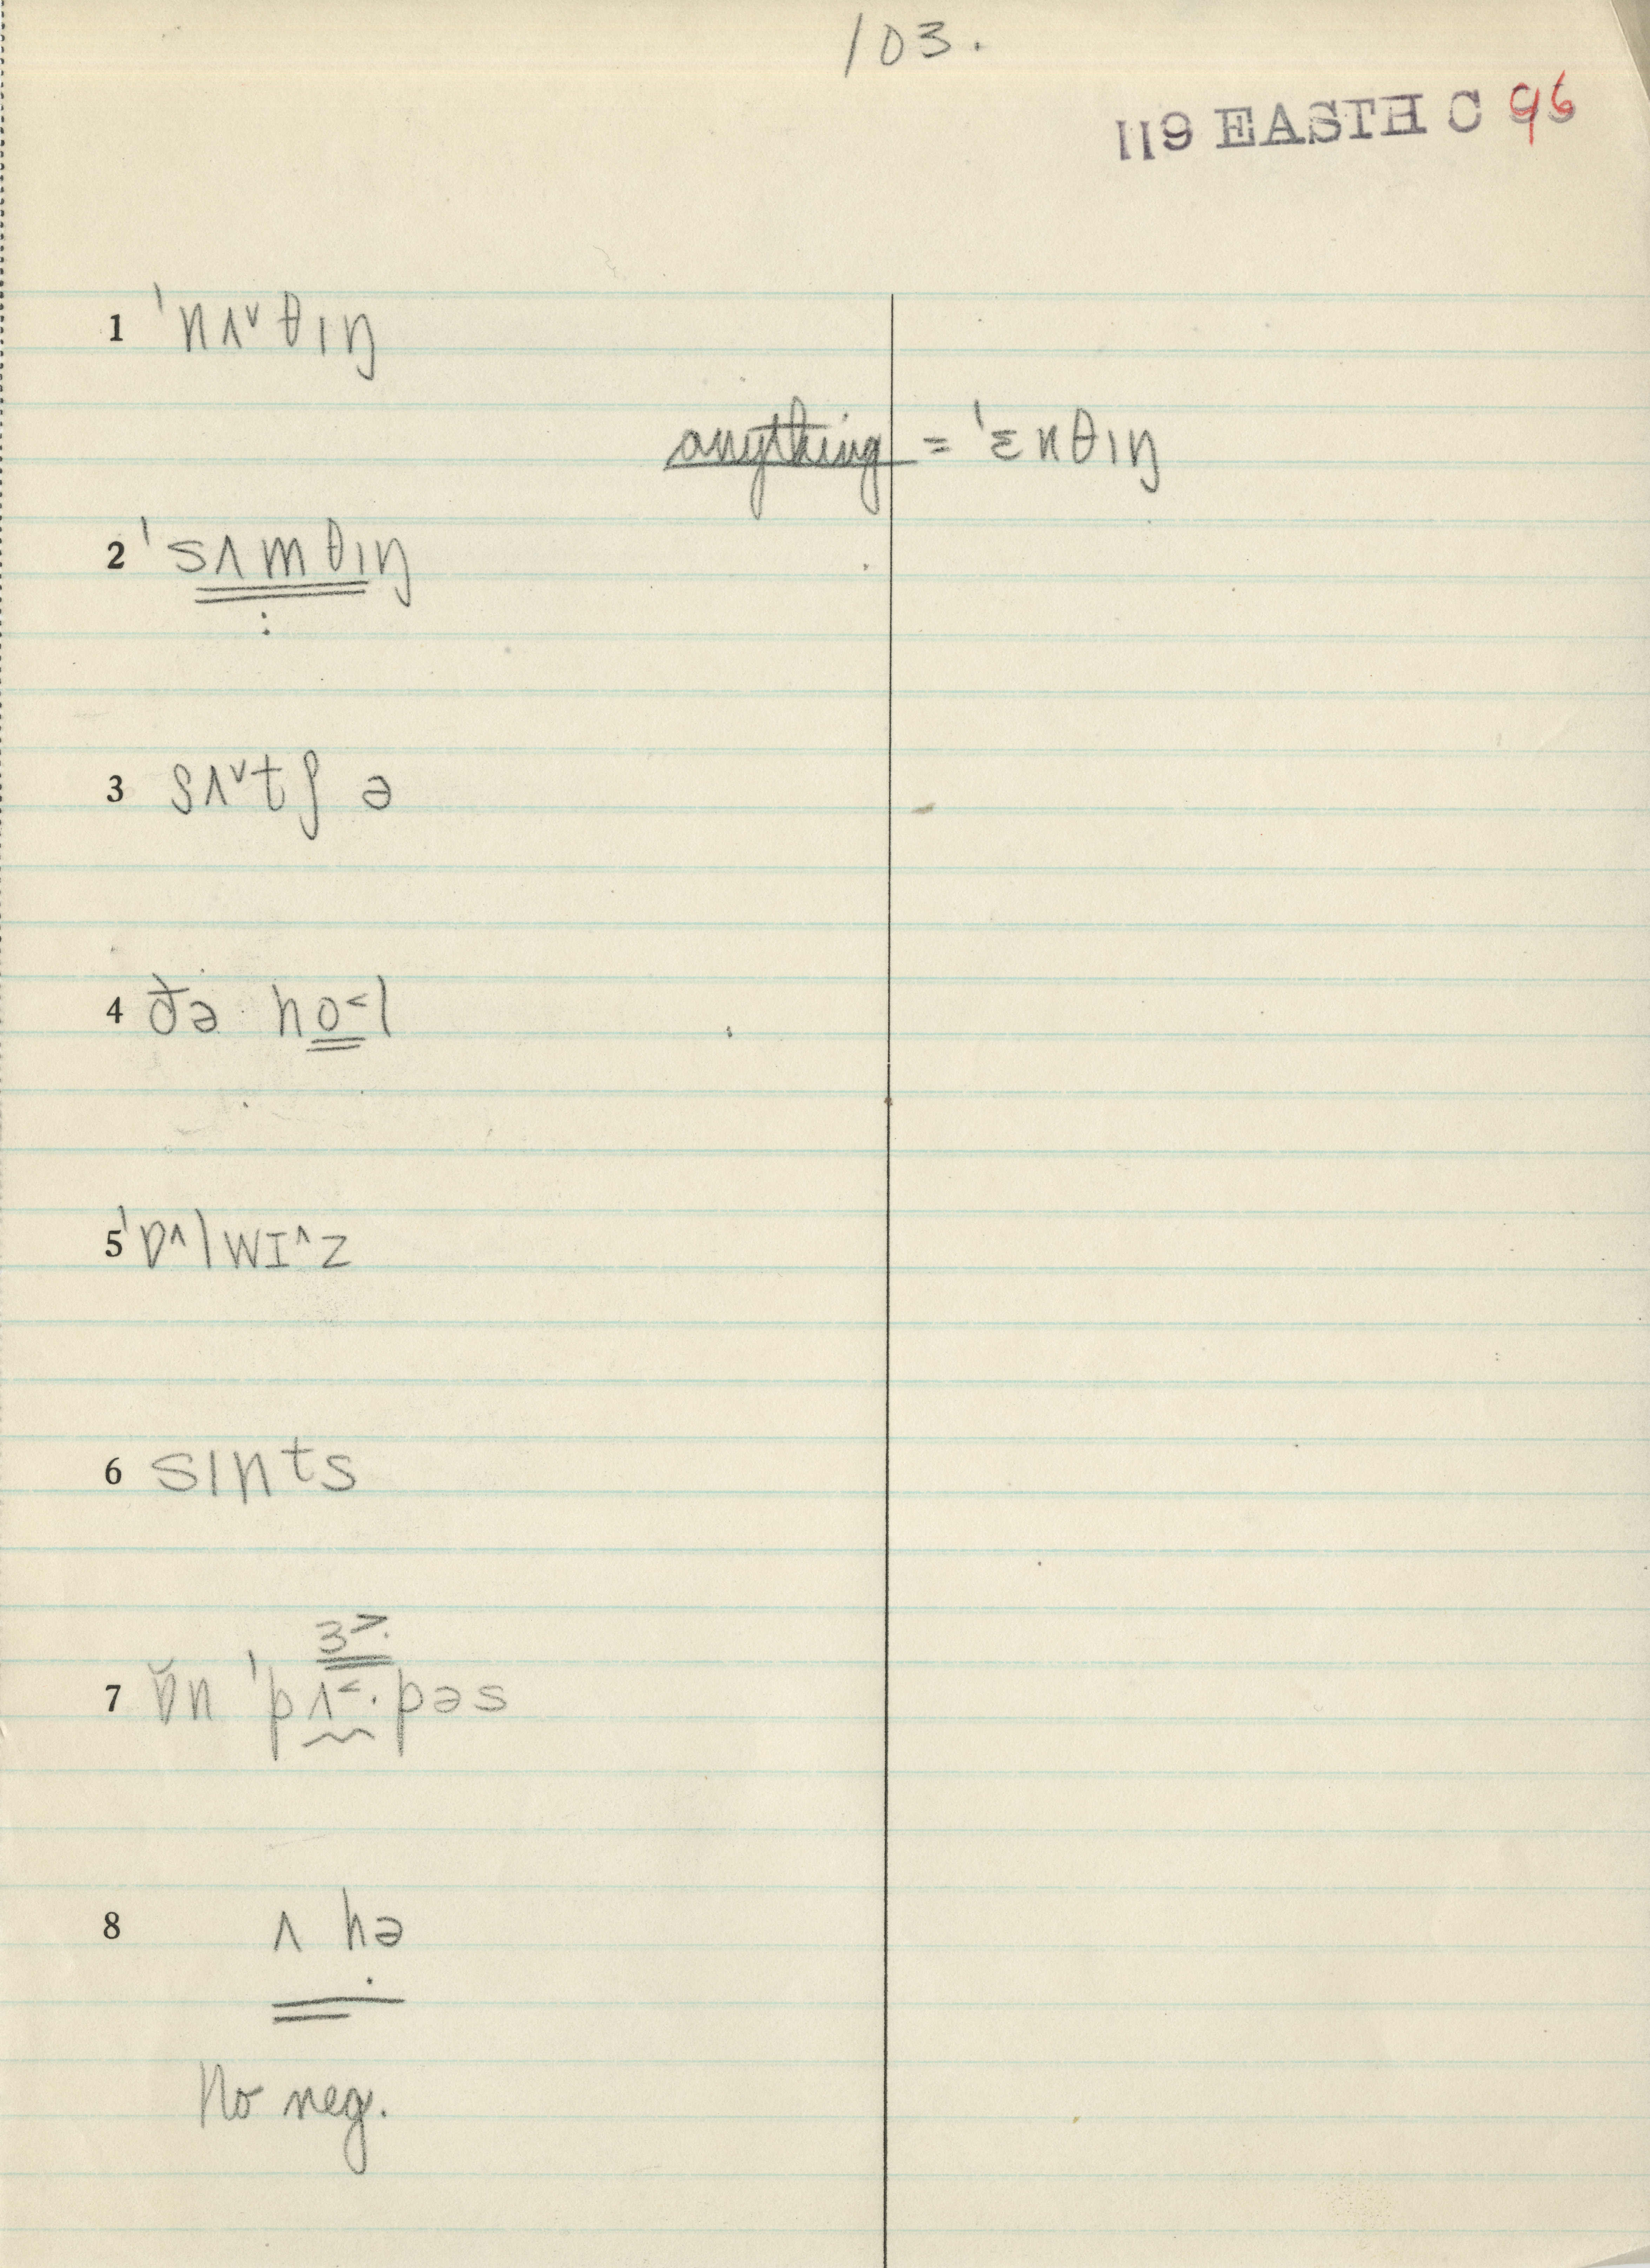 103.
119 EASTH C 96
1 ˈnʌ˅θɪŋ
anything = ˈɛnθɪŋ
2 ˈsʌmθɪŋ
3 sʌ˅tʃ ə
4 ðə ho˂l
5 ˈɒ˄lwɪ˄z
6 sɪnts
ɜ˃·
7 ɒ̆n ˈpʌ˂·pəs
8 ʌ hə
No neg.